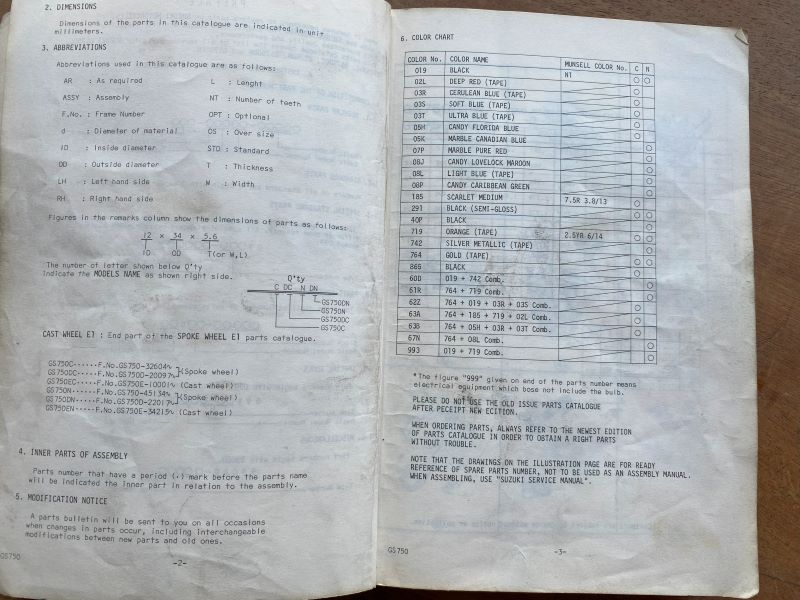 2. DIMENSIONS
Dimensions of the parts in this catalogue are indicated in unit
millimeters.
3. ABBREVIATIONS
Abbreviations used in this catalogue are as follows:
AR : As required L : Lenght
ASSY : Assembly NT : Number of teeth
F.No. : Frame Number OPT : Optional
d : Diameter of material OS : Over size
ID : Inside diameter STD : Standard
OD : Outside diameter T : Thickness
LH : Left hand side W : Width
RH : Right hand side
Figures in the remarks column show the dimensions of parts as follows:
12 × 34 × 5.6
ID OD T(or W,L)
The number of letter shown below Q'ty
indicate the MODELS NAME as shown right side.
Q'ty
C DC N DN
GS750DN
GS750N
GS750DC
GS750C
CAST WHEEL E1 : End part of the SPOKE WHEEL E1 parts catalogue.
GS750C·····F.No.GS750-32604~
GS750DC····F.No.GS750D-20097~ }(Spoke wheel)
GS750EC····F.No.GS750E-10001~ (Cast wheel)
GS750N·····F.No.GS750-45134~
GS750DN····F.No.GS750D-22017~ }(Spoke wheel)
GS750EN····F.No.GS750E-34215~ (Cast wheel)
4. INNER PARTS OF ASSEMBLY
Parts number that have a period (·) mark before the parts name
will be indicated the inner part in relation to the assembly.
5. MODIFICATION NOTICE
A parts bulletin will be sent to you on all occasions
when changes in parts occur, including interchangeable
modifications between new parts and old ones.
GS750
-2-
6. COLOR CHART
COLOR No. COLOR NAME MUNSELL COLOR No. C N
019 BLACK N1 ○ ○
02L DEEP RED (TAPE) ○
03R CERULEAN BLUE (TAPE) ○
03S SOFT BLUE (TAPE) ○
03T ULTRA BLUE (TAPE) ○
05H CANDY FLORIDA BLUE ○
05K MARBLE CANADIAN BLUE ○
07P MARBLE PURE RED ○
08J CANDY LOVELOCK MAROON ○
08L LIGHT BLUE (TAPE) ○
08P CANDY CARIBBEAN GREEN ○
185 SCARLET MEDIUM 7.5R 3.8/13 ○
291 BLACK (SEMI-GLOSS) ○ ○
40P BLACK ○
719 ORANGE (TAPE) 2.5YR 6/14 ○ ○
742 SILVER METALLIC (TAPE) ○
764 GOLD (TAPE) ○ ○
865 BLACK ○
60D 019 + 742 Comb. ○
61R 764 + 719 Comb. ○
62Z 764 + 019 + 03R + 03S Comb. ○
63A 764 + 185 + 719 + 02L Comb. ○
63B 764 + 05H + 03R + 03T Comb. ○
67N 764 + 08L Comb. ○
993 019 + 719 Comb. ○
*The figure "999" given on end of the parts number means
electrical equipment which bose not include the bulb.
PLEASE DO NOT USE THE OLD ISSUE PARTS CATALOGUE
AFTER PECEIPT NEW ECITION.
WHEN ORDERING PARTS, ALWAYS REFER TO THE NEWEST EDITION
OF PARTS CATALOGUE IN ORDER TO OBTAIN A RIGHT PARTS
WITHOUT TROUBLE.
NOTE THAT THE DRAWINGS ON THE ILLUSTRATION PAGE ARE FOR READY
REFERENCE OF SPARE PARTS NUMBER, NOT TO BE USED AS AN ASSEMBLY MANUAL.
WHEN ASSEMBLING, USE "SUZUKI SERVICE MANUAL".
GS750
-3-